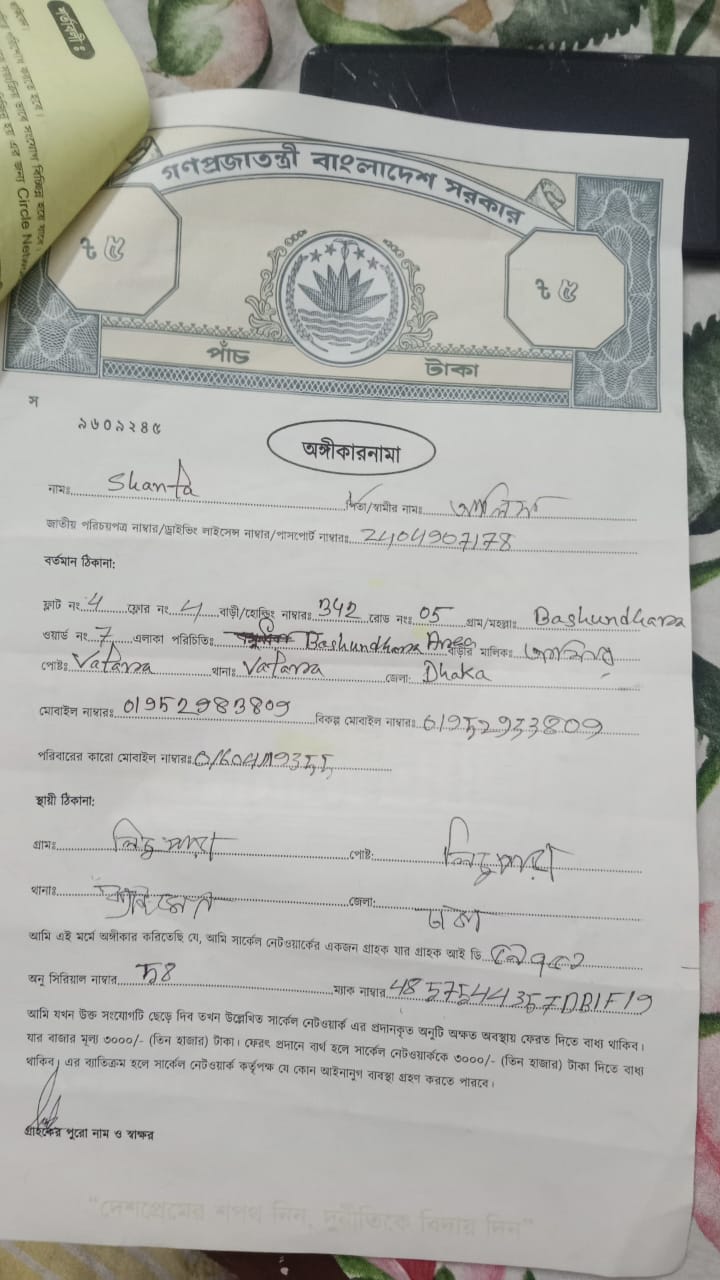 শর্তাবলী :
গণপ্রজাতন্ত্রী বাংলাদেশ সরকার
৳ ৫ ৳ ৫
পাঁচ টাকা
স
৯৬০৯২৪৫
অঙ্গীকারনামা
নামঃ Shanta পিতা/স্বামীর নামঃ
জাতীয় পরিচয়পত্র নাম্বার/ড্রাইভিং লাইসেন্স নাম্বার/পাসপোর্ট নাম্বারঃ 2404907178
বর্তমান ঠিকানা:
ফ্লাট নং: 4 ফ্লোর নং: 4 বাড়ী/হোল্ডিং নাম্বারঃ 342 রোড নংঃ 05 গ্রাম/মহল্লাঃ Bashundhara
ওয়ার্ড নং: 7 এলাকা পরিচিতিঃ Bashundhara Area বাড়ীর মালিকঃ
পোষ্টঃ Vatara থানাঃ Vatara জেলা: Dhaka
মোবাইল নাম্বারঃ 01952983809 বিকল্প মোবাইল নাম্বারঃ
পরিবারের কারো মোবাইল নাম্বারঃ
স্থায়ী ঠিকানা:
গ্রামঃ পোষ্ট:
থানাঃ জেলা: ঢাকা
আমি এই মর্মে অঙ্গীকার করিতেছি যে, আমি সার্কেল নেটওয়ার্কের একজন গ্রাহক যার গ্রাহক আই ডি
অনু সিরিয়াল নাম্বার ম্যাক নাম্বার
আমি যখন উক্ত সংযোগটি ছেড়ে দিব তখন উল্লেখিত সার্কেল নেটওয়ার্ক এর প্রদানকৃত অনুটি অক্ষত অবস্থায় ফেরত দিতে বাধ্য থাকিব।
যার বাজার মূল্য ৩০০০/- (তিন হাজার) টাকা। ফেরৎ প্রদানে ব্যর্থ হলে সার্কেল নেটওয়ার্ককে ৩০০০/- (তিন হাজার) টাকা দিতে বাধ্য
থাকিব। এর ব্যতিক্রম হলে সার্কেল নেটওয়ার্ক কর্তৃপক্ষ যে কোন আইনানুগ ব্যবস্থা গ্রহণ করতে পারবে।
গ্রাহকের পুরো নাম ও স্বাক্ষর
"দেশপ্রেমের শপথ নিন, দুর্নীতিকে বিদায় দিন"